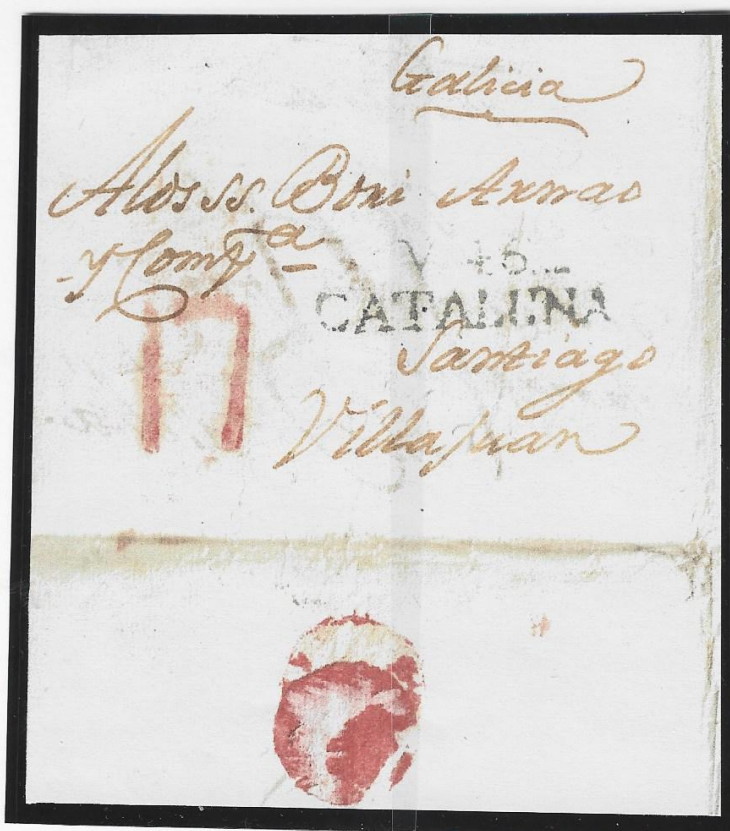 Galicia
A los ss. Boni Anrrao
y Comp.ª
V 46...
CATALUÑA
11
Santiago
Villajuan